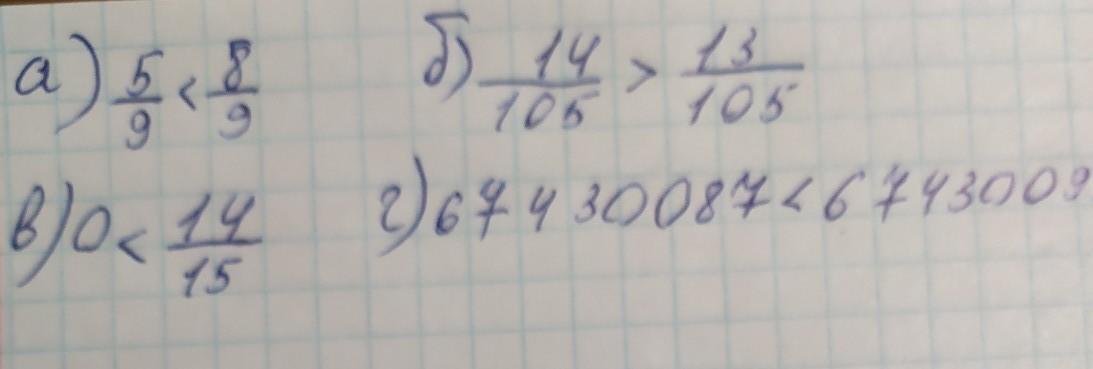 а) 5/9 < 8/9 б) 14/105 > 13/105
в) 0 < 14/15 г) 67430087 < 6743009